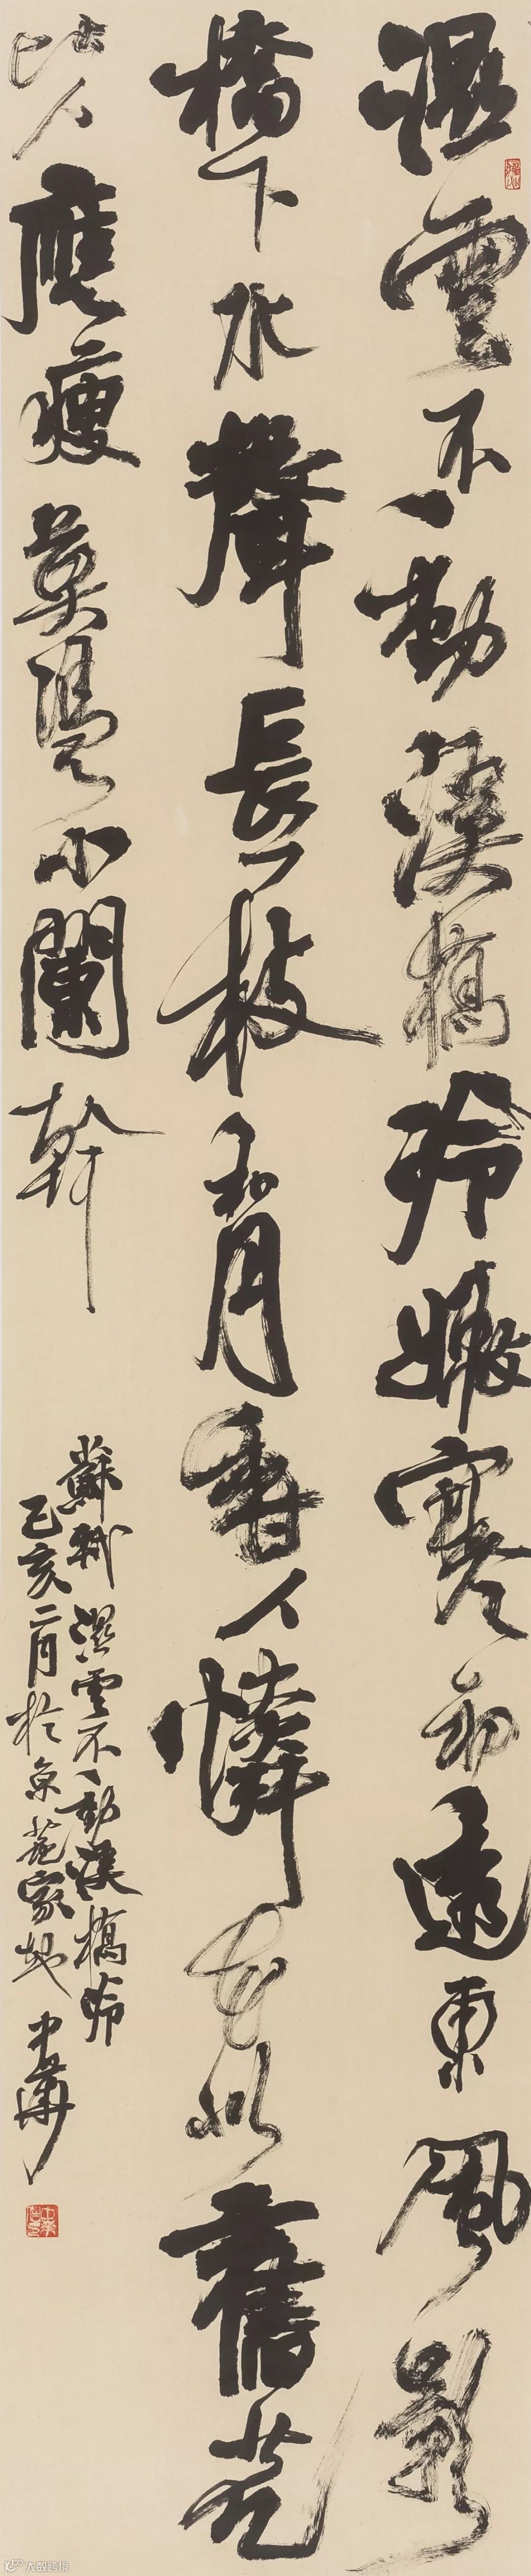 濕雲不動溪橋冷嫩寒初透東風影
橋下水聲長一枝和月香人憐花似舊花
比人應瘦莫憑小闌幹
蘇軾濕雲不動溪橋冷
己亥二月於京花家地中華